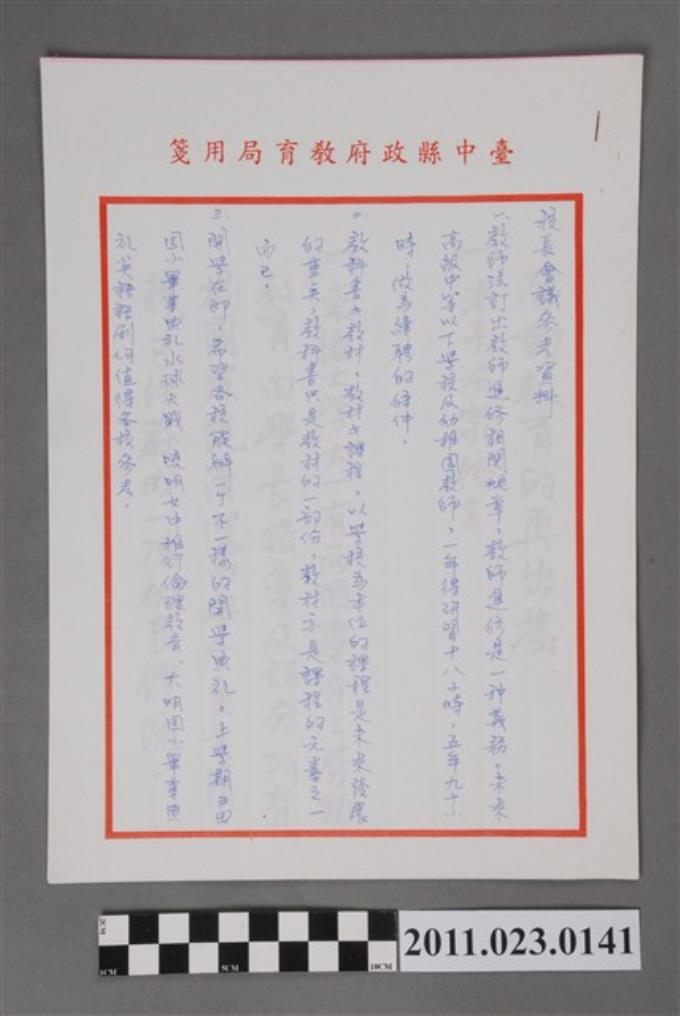 臺中縣政府教育局用箋
校長會議參考資料
一、教師法訂出教師進修相關規章，教師進修是一種義務。未來
高級中等以下學校及幼稚園教師，一年得研習十八小時，五年九十小
時，做為續聘的條件。
二、教科書≠教材，教材≠課程，以學校為本位的課程是未來發展
的重點，教科書只是教材的一部份，教材亦是課程的元素之一
而已。
三、開學在即，希望各校能辦一個不一樣的開學典禮。上學期
國小畢業典禮水球大戰、曉明女中推行倫理教育、大明國小畢業典
禮英語話劇，均值得各校參考。
2011.023.0141
5CM
10CM